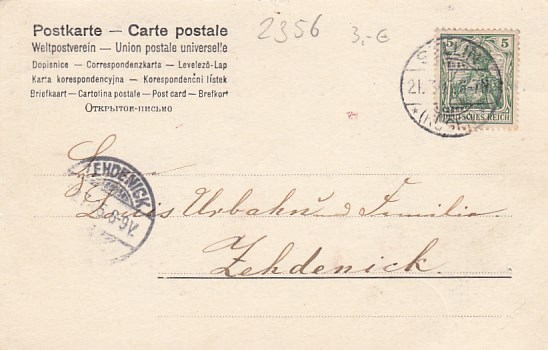 Postkarte — Carte postale
Weltpostverein — Union postale universelle
Dopisnice — Correspondenzkarte — Levelező-Lap
Karta korespondencyjna — Korespondenční lístek
Briefkaart — Cartolina postale — Post card — Brefkort
Открытое письмо
2356 3,-€
5
DEUTSCHES REICH
21.3.
ZEHDENICK
6-9V.
Herrn
Louis Urbahn und Familie.
Zehdenick.